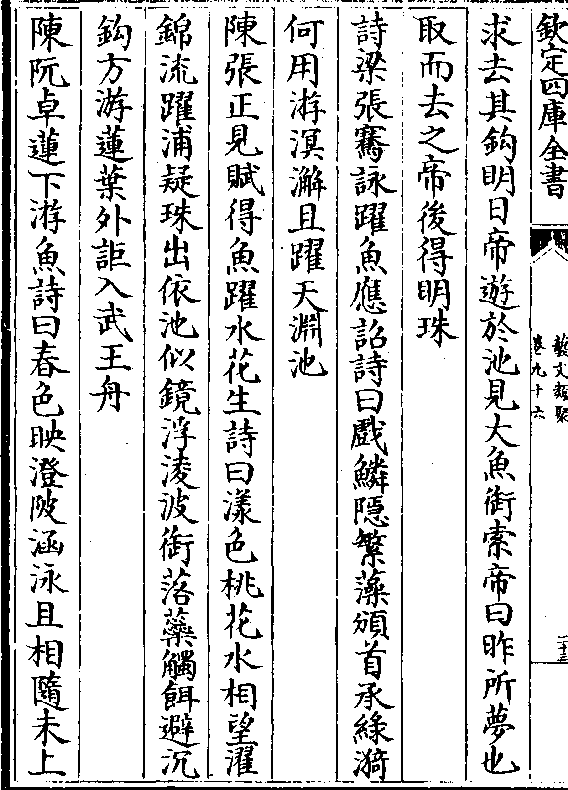 欽定四庫全書
藝文類聚
卷九十六
二十三
求去其鈎明日帝遊於池見大魚銜索帝曰昨所夢也
取而去之帝後得明珠
詩梁張騫詠躍魚應詔詩曰戲鱗隱繁藻頒首承綠漪
何用游溟澥且躍天淵池
陳張正見賦得魚躍水花生詩曰漾色桃花水相望濯
錦流躍浦疑珠出依池似鏡浮淩波銜落蘂觸餌避沉
鈎方游蓮葉外詎入武王舟
陳阮卓蓮下游魚詩曰春色映澄陂涵泳且相隨未上